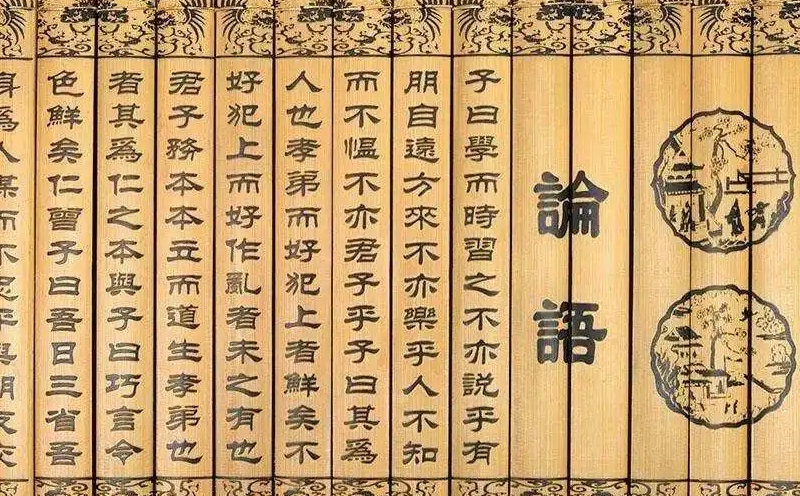 論語
子曰學而時習之不亦說乎有
朋自遠方來不亦樂乎人不知
而不愠不亦君子乎子曰其爲
人也孝弟而好犯上者鮮矣不
好犯上而好作亂者未之有也
君子務本本立而道生孝弟也
者其爲仁之本與子曰巧言令
色鮮矣仁曾子曰吾日三省吾
身爲人謀而不忠乎與朋友交